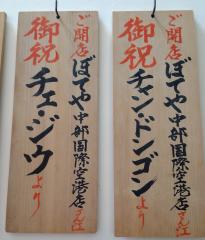 ご開店
ぼてや中部国際空港店さん江
御祝
チャンドンゴン
より
ご開店
ぼてや中部国際空港店さん江
御祝
チェジウ
より